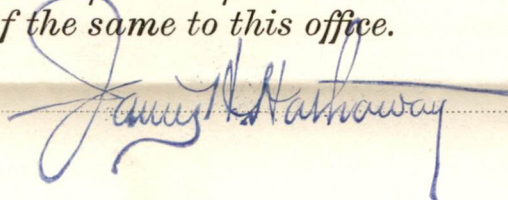 f the same to this office.
James H. Hathaway